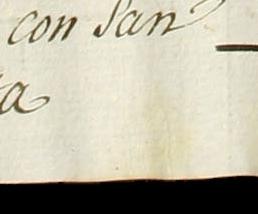 con San
ta